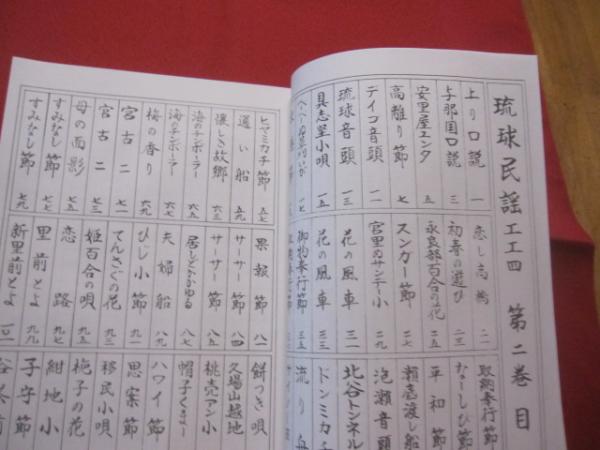 琉球民謡工工四 第二巻 目
上り口説 一
与那国口説 三
安里屋ユンタ 五
高離り節 七
デイコ音頭 一一
琉球音頭 一三
具志堅小唄 一五
恋し高橋 二一
初春の遊び 二三
永良部百合の花 二五
スンガー節 二七
宮里ぬサンデー小 二九
花の風車 三一
花の風車 三三
御物奉行節 三五
取納奉行節
なーしび節
平和節
瀬嵩渡し船
泡瀬音頭
北谷トンネル
ドンミカチ
流り舟
ヒヤミカチ節 五七
通い船 五九
懐しき故郷 六三
海のチンボーラー 六五
海のチンボーラー 六七
梅の香り 六九
宮古ニ 七一
宮古ニ 七三
母の面影 七五
すみなし節 七七
すみなし節 七九
果報節 八一
ササー節 八四
ササー節 八五
居しどかかゆる 八七
夫婦船 八九
ひじ小節 九一
てんさぐの花 九三
姫百合の唄 九五
恋路 九七
里前とよ 九九
新里前とよ 一〇一
餅つき唄
久場山越地
桃売アン小
帽子くまー
ハワイ節
思案節
移民小唄
梔子の花
紺地小
子守節